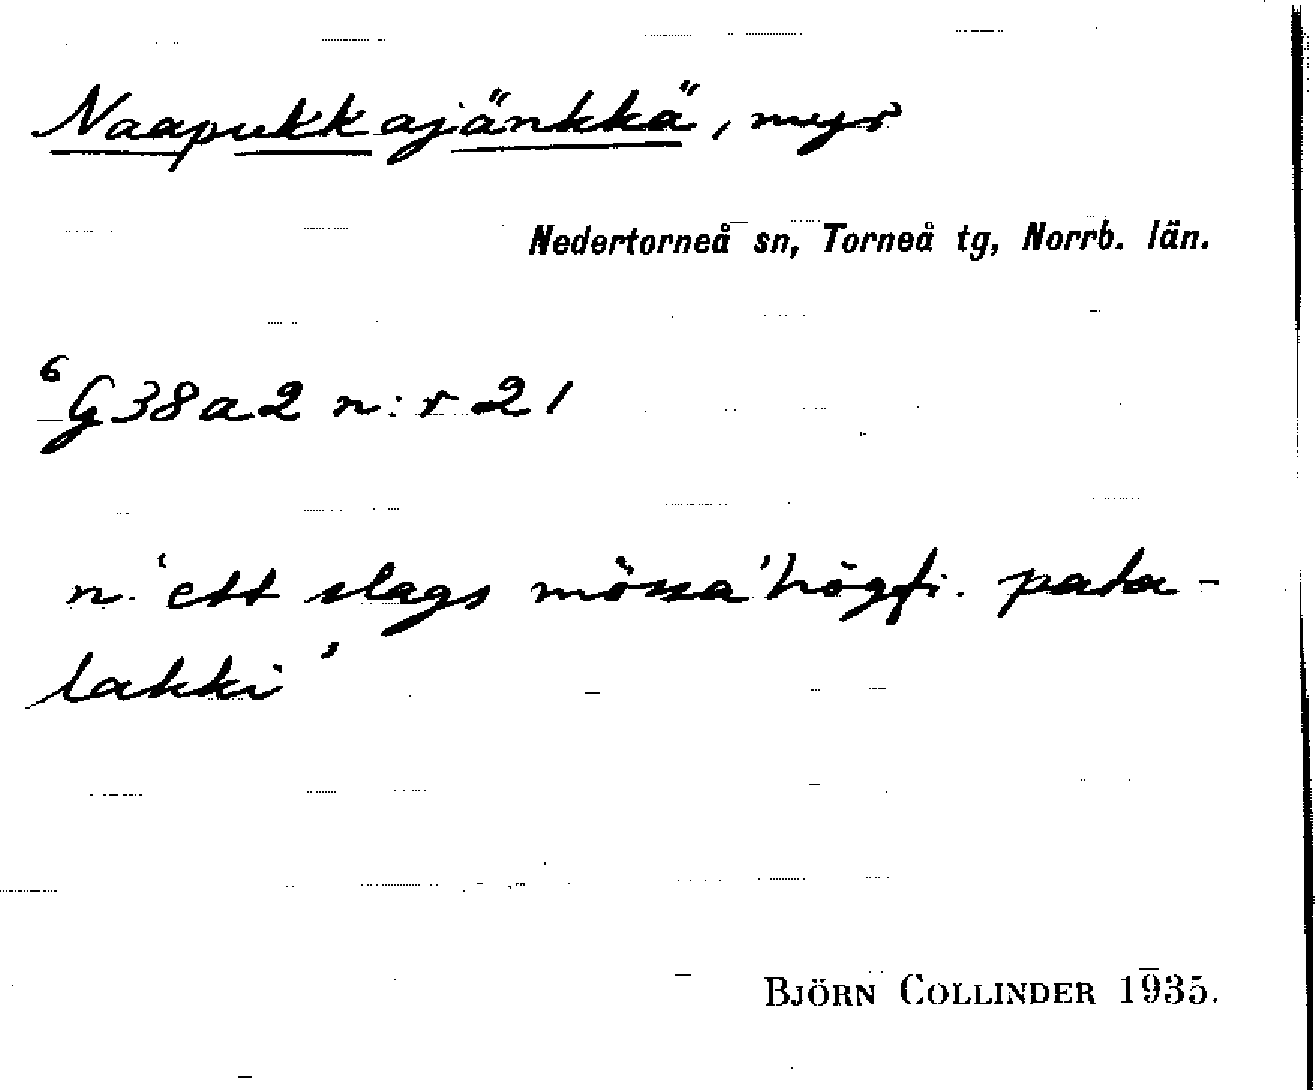 Naapukkajänkkä, myr
Nedertorneå sn, Torneå tg, Norrb. län.
⁶G38a2 n:r 21
n. ‘ett slags mössa’ högfi. pata-
lakki’
BJÖRN COLLINDER 1935.